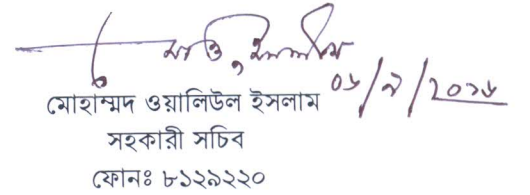 ০৬/৯/২০১৬
মোহাম্মদ ওয়ালিউল ইসলাম
সহকারী সচিব
ফোনঃ ৮১২৯২২০